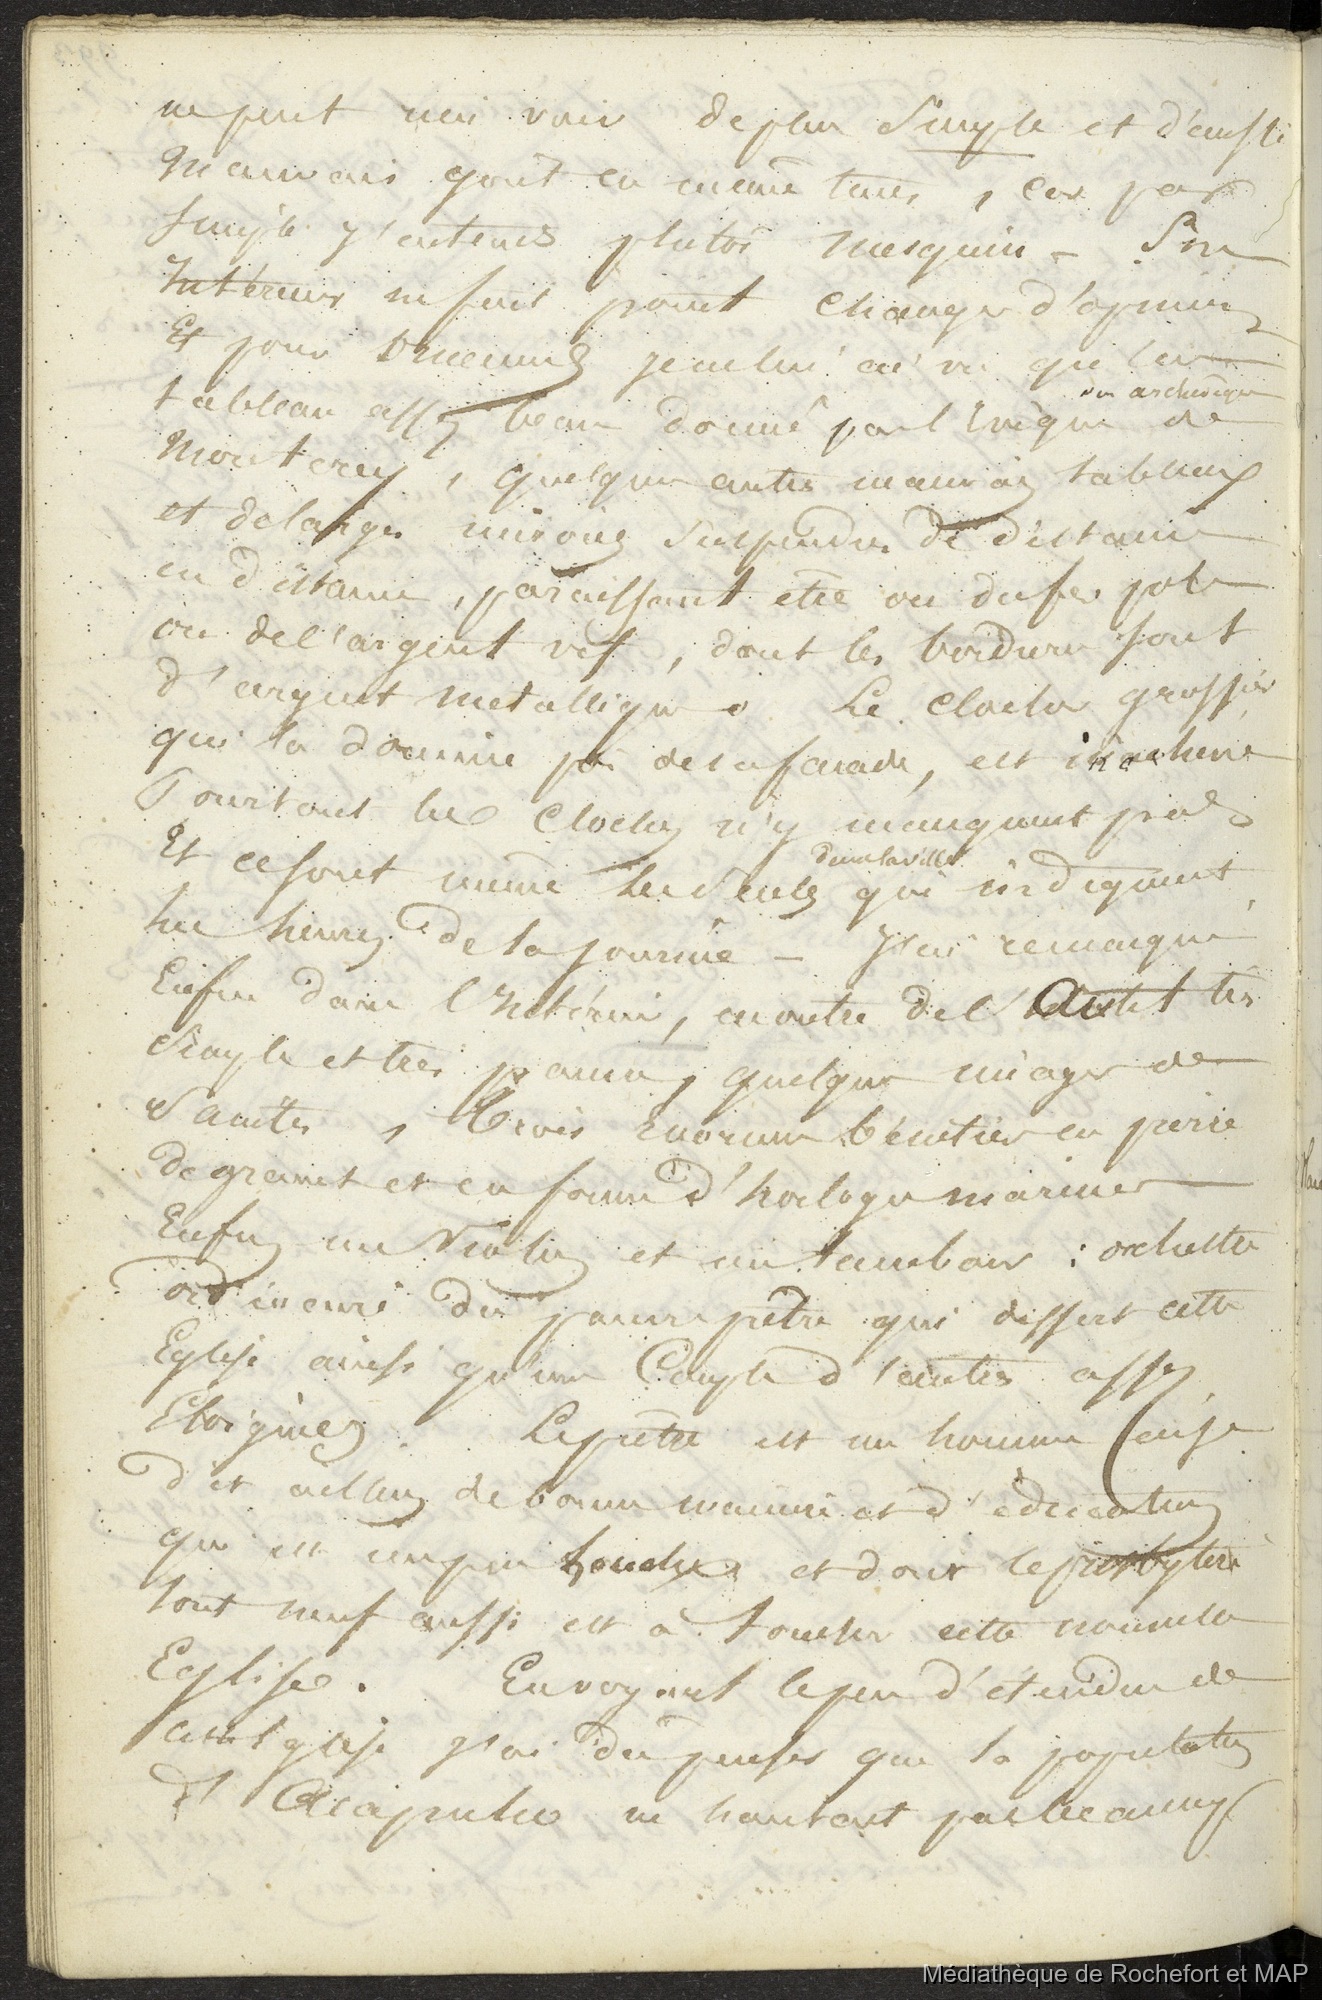 ne peut rien voir de plus Simple et d'aussi
Mauvais goût en même tems, car par
Simple j'entends plutôt mesquin - Son
Intérieur ne fait point changer d'opinion
Et pour ornemens je n'ai vu qu'un
tableau assez beau donné par l'Evêque de
ou archevêque
Monterey, quelques autres mauvais tableaux
et de larges miroirs suspendus de distance
en distance, paraissant être ou du fer poli
ou de l'argent vif, dont les bordures sont
d'argent métallique. Le clocher grossier
qui la domine près de sa façade, est inachevé
Pourtant les cloches n'y manquent pas
Et ce sont même les seules qui indiquent
dans la ville
les heures de la journée - J'ai remarqué
Enfin dans l'Intérieur, en outre de l'Autel très
Simple et très pauvre, quelques images de
Saintes, trois énormes bénitiers en pierre
de granit et en forme d'horloges marines
Enfin un violon et un tambour : orchestre
ordinaire du pauvre prêtre qui dessert cette
Eglise ainsi qu'une Couple d'autres assez
Eloignées. Le prêtre est un homme
d'ailleurs de bonnes manières et d'éducation
qui est un peu et dont le presbytère
tout neuf aussi est à toucher cette nouvelle
Eglise. En voyant le peu d'étendue de
cette Eglise j'ai dû penser que la population
d'Acapulco ne hantait pas beaucoup
Médiathèque de Rochefort et MAP